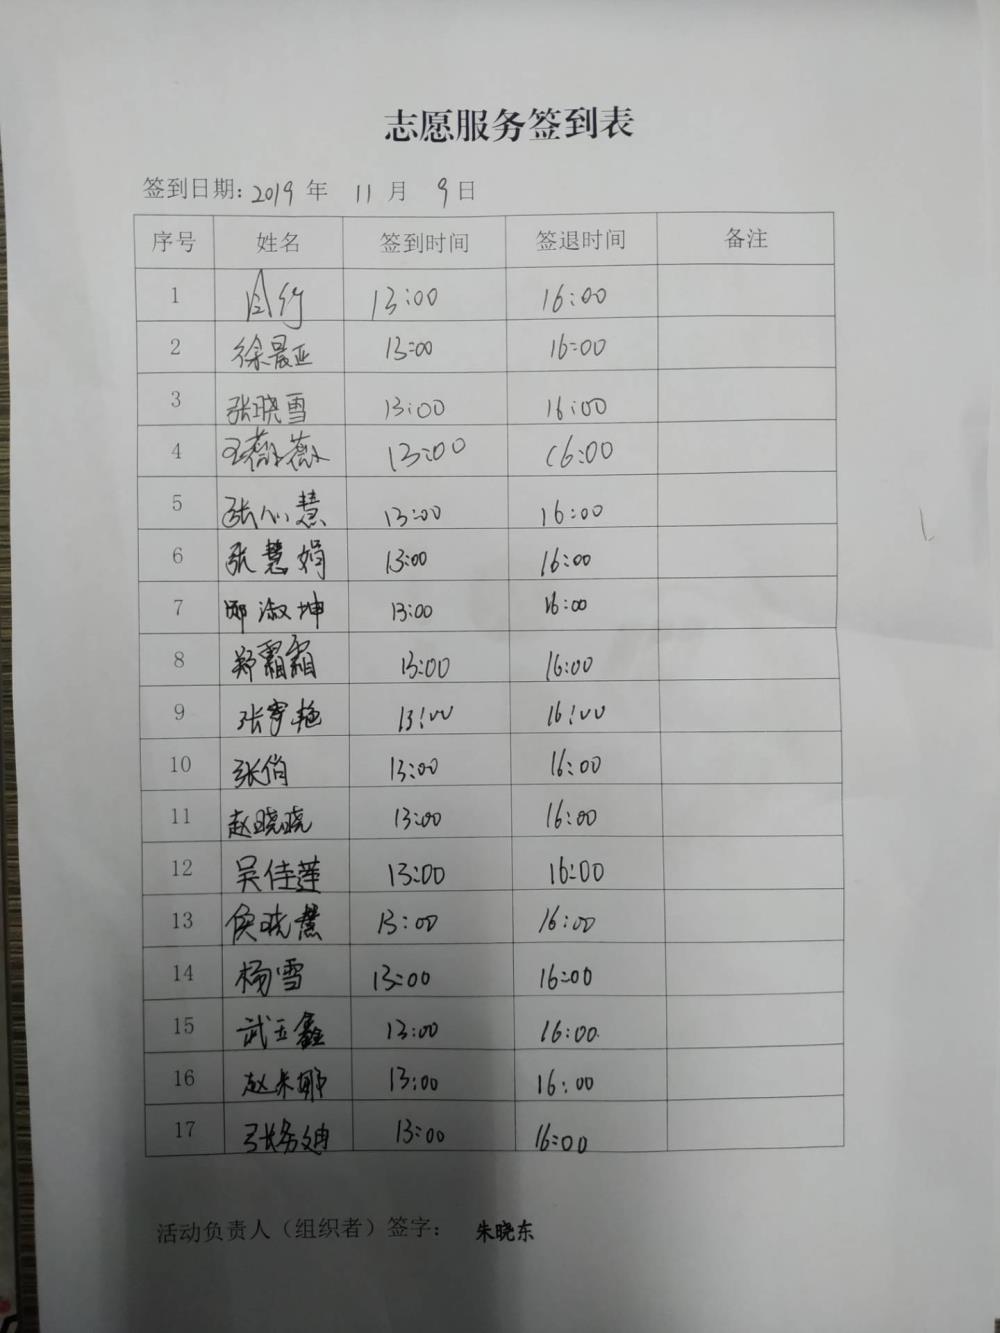 志愿服务签到表
签到日期: 2019 年 11 月 9 日
序号 姓名 签到时间 签退时间 备注
1 13:00 16:00
2 徐晨亚 13:00 16:00
3 张晓雪 13:00 16:00
4 王薇薇 13:00 16:00
5 张心慧 13:00 16:00
6 张慧娟 13:00 16:00
7 淑坤 13:00 16:00
8 郑霜霜 13:00 16:00
9 张 艳 13:00 16:00
10 张伯 13:00 16:00
11 赵晓晓 13:00 16:00
12 吴佳莲 13:00 16:00
13 侯晓慧 13:00 16:00
14 杨雪 13:00 16:00
15 武玉鑫 13:00 16:00
16 赵 娜 13:00 16:00
17 张 13:00 16:00
活动负责人（组织者）签字： 朱晓东